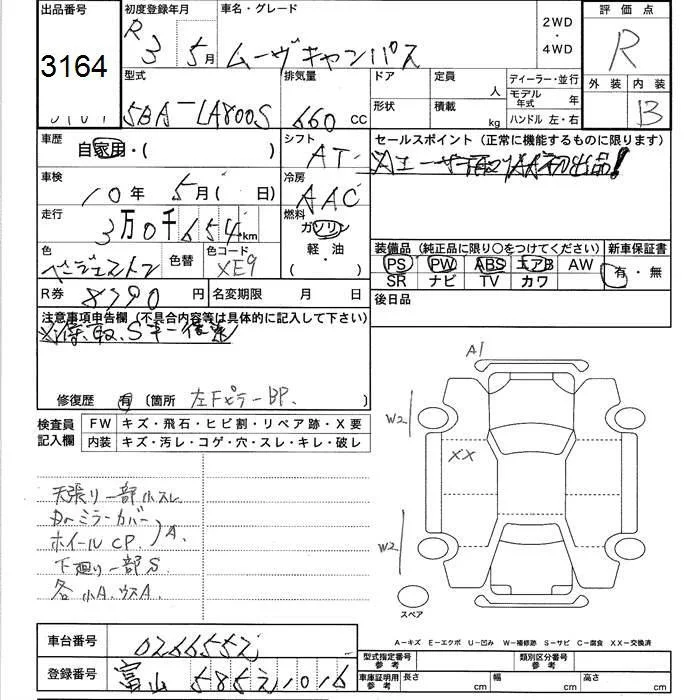 出品番号
3164
初度登録年月
R 3 5月
車名・グレード
ムーヴキャンバス
2WD
・
4WD
評価点
R
外装 内装
B
型式
5BA-LA800S
排気量
660 CC
ドア
形状
定員
人
積載
kg
ディーラー・並行
モデル年式 年
ハンドル 左・右
車歴
自家用・( )
シフト
AT
セールスポイント (正常に機能するものに限ります)
車検
10年 5月( 日)
冷房
AAC
走行
3万0千654km
燃料
ガソリン
軽・油
・( )
色
色替
色コード
XE9
装備品 (純正品に限り○をつけてください)
PS PW ABS エアB AW
SR ナビ TV カワ
新車保証書
有・無
R券 8790円
名変期限 月 日
後日品
注意事項申告欄 (不具合内容等は具体的に記入して下さい)
修復歴 有 (箇所 左Fピラー BP. )
検査員記入欄
FW キズ・飛石・ヒビ割・リペア跡・X要
内装 キズ・汚レ・コゲ・穴・スレ・キレ・破レ
天張り一部小スレ
ドアミラーカバー
ホイールCP. A.
下廻り一部S
各小A.ウスA
A1
W2
XX
W2
スペア
A-キズ E-エクボ U-凹み W-補修跡 S-サビ C-腐食 XX-交換済
車台番号
登録番号 富山
型式指定番号 参考
類別区分番号 参考
車庫証明用 参考
長さ cm 幅 cm 高さ cm